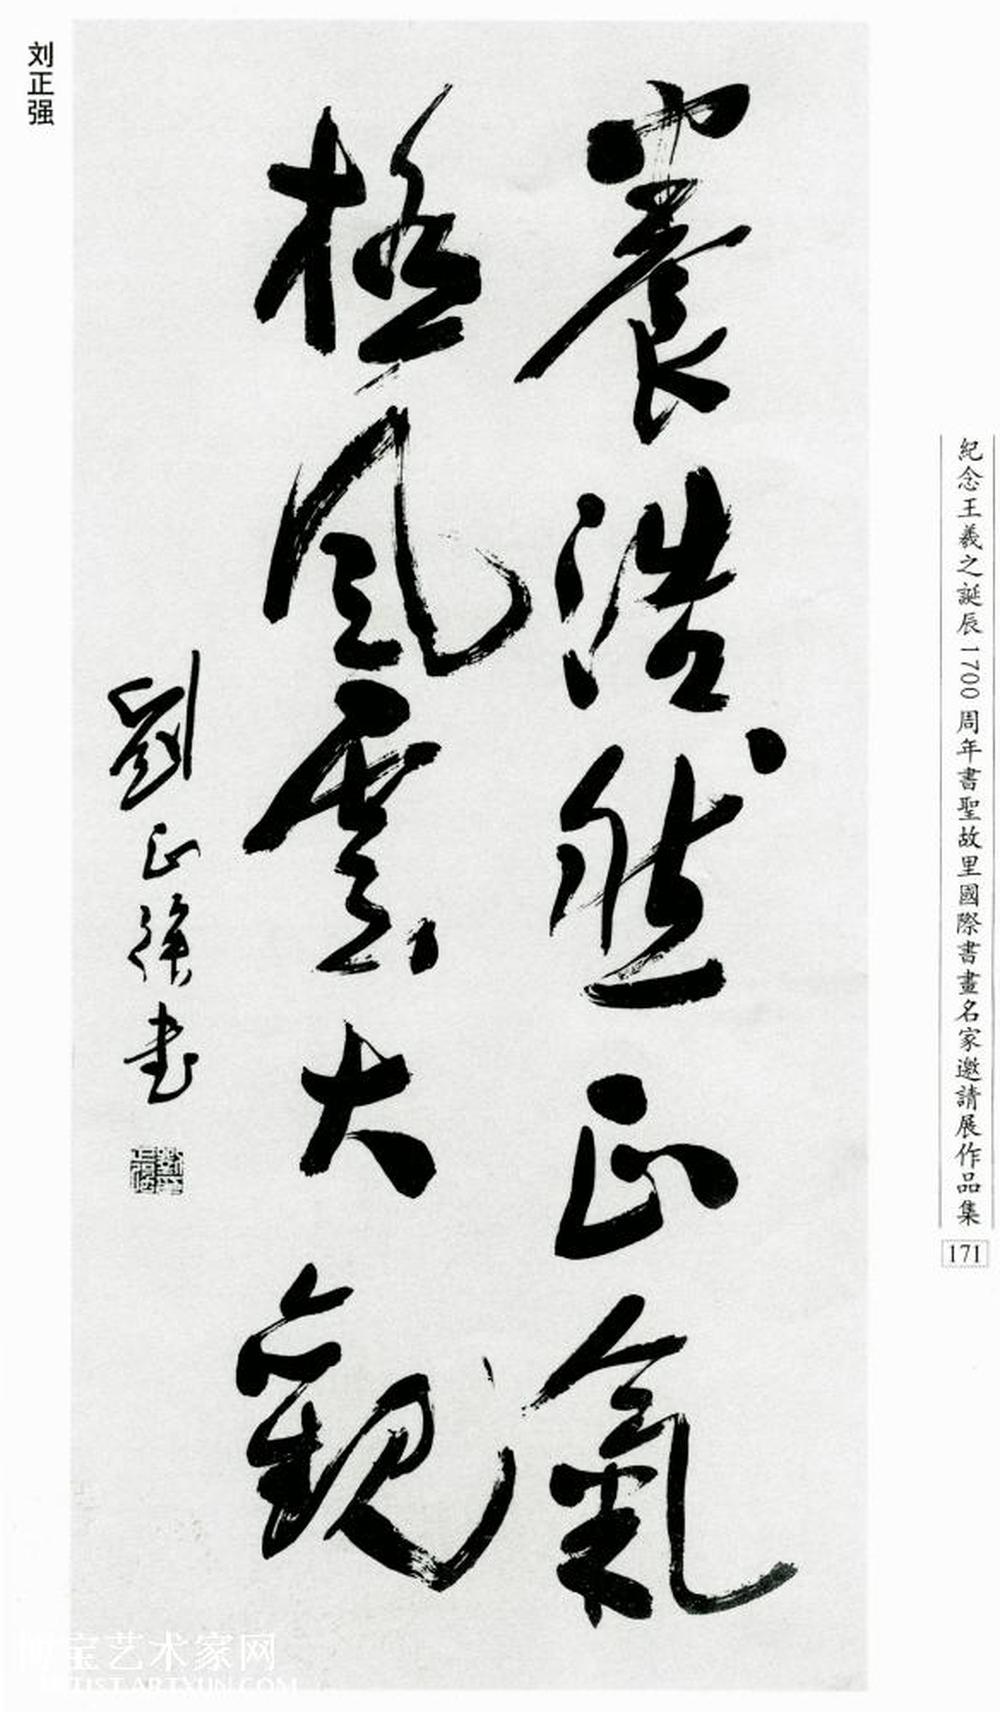 養浩然正氣
極風雲大觀
劉正強書
刘正强
紀念王羲之誕辰1700周年書聖故里國際書畫名家邀請展作品集
171
博宝艺术家网
ARTIST.ARTXUN.COM